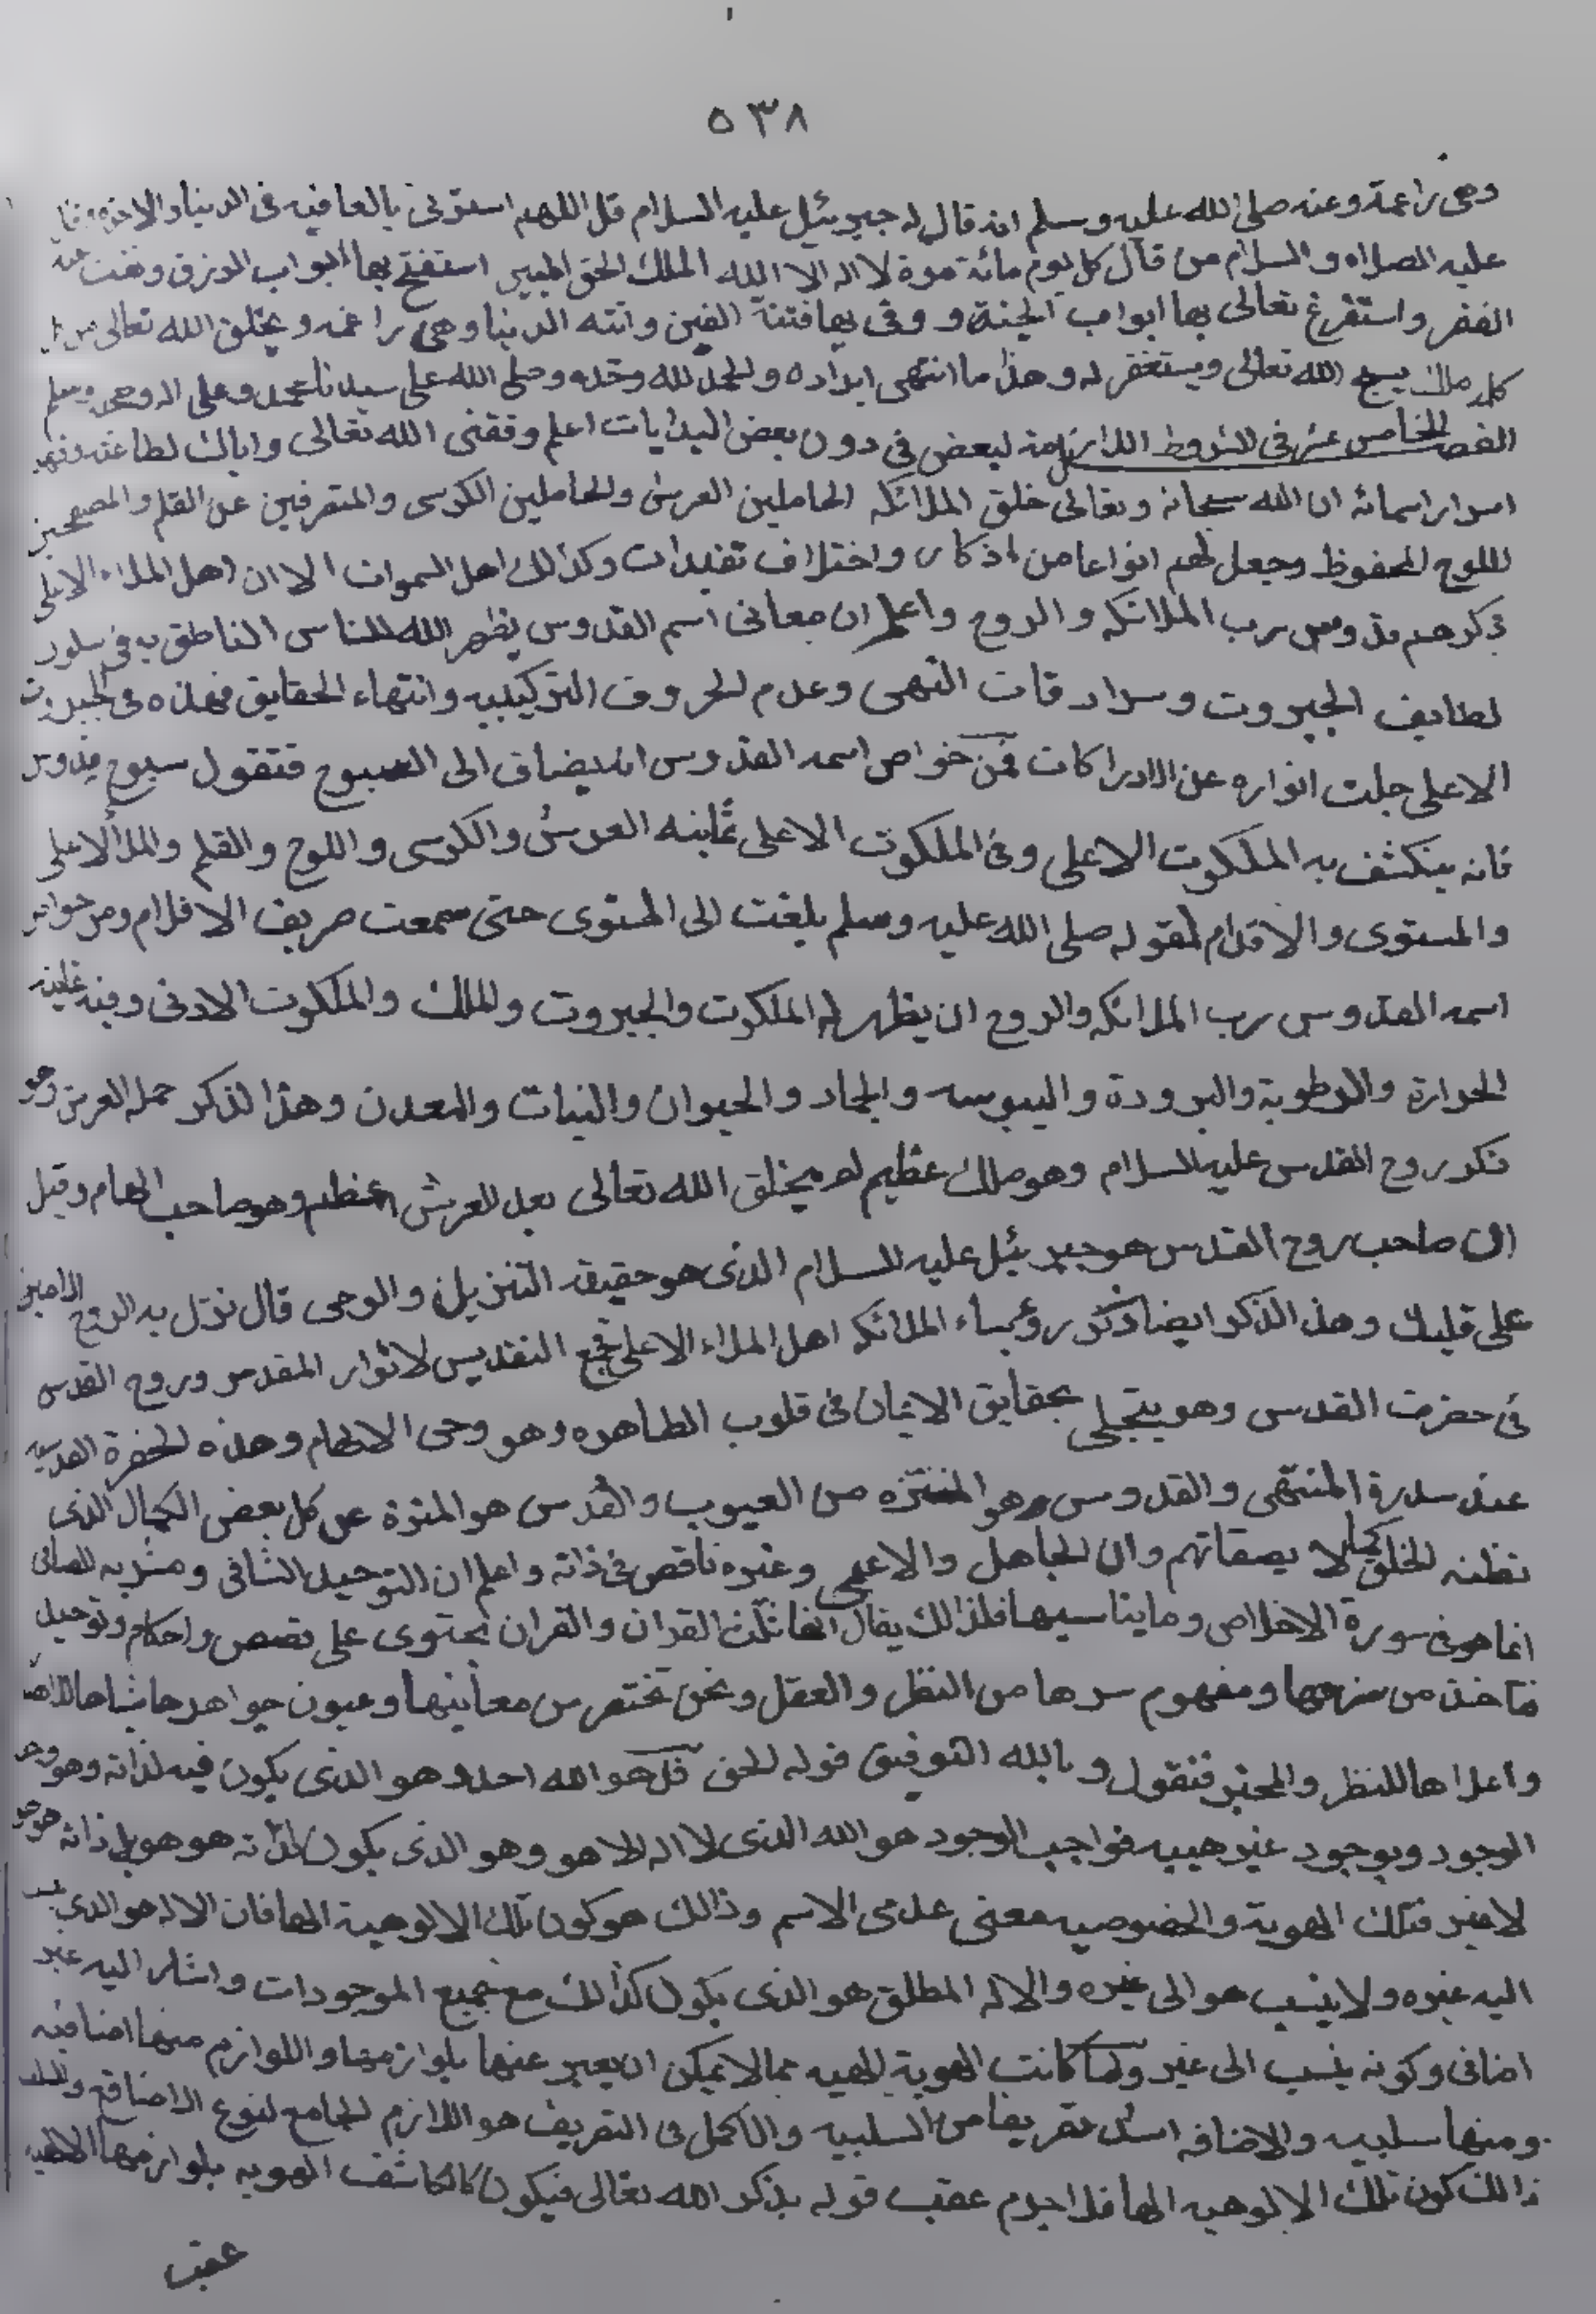 ٥٣٨
وهى راغمة وعنه صلى الله عليه وسلم انه قال له جبريئل عليه السلام قل اللهم استرنى بالعافيه فى الدنيا والاخره وقال
عليه الصلاه والسلام من قال كل يوم مائة مرة لا اله الا الله الملك الحق المبين استفتح بها ابواب الرزق ونفت عنه
الفقر واستقرغ تعالى بها ابواب الجنة و وقى بها فتنة القبر واتته الدنيا وهى راغمه ويخلق الله تعالى من
كلمه ملك يسبح الله تعالى ويستغفر له وهذا ما انتهى ايراده والحمد لله وحده وصلى الله على سيدنا محمد وعلى اله وصحبه وسلم
الفصل الخامس عشر فى الشروط اللازمة لبعض فى دون بعض البدايات اعلم وفقنى الله تعالى واياك لطاعته وفهم
اسرار اسمائه ان الله سبحانه وتعالى خلق الملائكه الحاملين العرش والحاملين الكرسى والمتعرفين عن القلم والمصححين
للوح المحفوظ وجعل لهم انواعا من اذكار واختلاف تقيدات وكذالك اهل السموات الا ان اهل الملاء الاعلى
ذكرهم قدوس رب الملائكه والروح واعلم ان معانى اسم القدوس يظهر الله للناس الناطق به فى سلوك
لطايف الجبروت وسرادقات النهى وعدم الحروف التركيبيه وانتهاء الحقايق فهذه فى الجبروت
الاعلى جلت انواره عن الادراكات فمن خواص اسمه القدوس انه يضاف الى السبوح فتقول سبوح قدوس
فانه ينكشف به الملكوت الاعلى وفى الملكوت الاعلى ثمانيه العرش والكرسى واللوح والقلم والملا الاعلى
والمستوى والاقلام لقوله صلى الله عليه وسلم بلغت الى المستوى حتى سمعت صريف الاقلام ومن خواص
اسمه القدوس رب الملائكه والروح ان يظهر له الملكوت والجبروت والملك والملكوت الادنى وفيه ثمانيه
الحرارة والرطوبة والبرودة واليبوسه والجماد والحيوان والنبات والمعدن وهذا الذكر حملة العرش وهو
ذكر روح القدس عليه السلام وهو ملك عظيم لم يخلق الله تعالى بعد العرش اعظم وهو صاحب الهام وقيل
ان صاحب روح القدس هو جبريئل عليه السلام الذى هو حقيقة التنزيل والوحى قال نزل به الروح الامين
على قلبك وهذ الذكر ايضا ذكر رؤساء الملائكه اهل الملاء الاعلى فجمع التقديس لانوار المقدس وروح القدس
فى حضرت القدس وهو يتجلى بحقايق الايمان فى قلوب الطاهره وهو وحى الالهام وهذه الحضرة القدسيه
عند سدرة المنتهى والقدوس وهو المنتزه من العيوب والقدس هو المنزة عن كل بعض الكمال الذى
تظنه الخلق كمالا بصفاتهم وان الجاهل والاعمى وغيره ناقص فى ذاته واعلم ان التوحيد الشافى ومشربه الصافى
انما هو فى سورة الاخلاص وما يناسبها فلذالك يقال انها ثلث القران والقران يحتوى على قصص واحكام وتوحيد
فتاخذ من شرحها ومفهوم سرها من النظر والعقل ونحن نختصر من معانيها وعيون جواهرها
واعلاها للنظر والمختبر فنقول وبالله التوفيق قوله الحق قل هو الله احد وهو الذى يكون فيه لذاته وهو
الوجود وبوجود غير هيبيه فواجب الوجود هو الله الذى لا اله الا هو وهو الذى يكون لذاته هو هو بل ذاته هو هو
لا غير فتلك الهوية والخصوصيه معنى عدمى الاسم وذالك هو كون تلك الالوهية الها فان الاله هو الذى ينسب
اليه غيره ولا ينسب هو الى غيره والاله المطلق هو الذى يكون كذالك مع جميع الموجودات واشار اليه غير
اضافى وكونه ينسب الى غير ولما كانت الهوية الهيه مما لا يمكن ان يعبر عنها بلوازمها واللوازم منها اضافيه
ومنها سلبيه والاضافه اشد تعريفا من السلبيه والاكمل فى التعريف هو اللازم الجامع لنوع الاضافه والسلب
ذالك كون تلك الالوهيه الها فلا جرم عقب قوله بذكر الله تعالى فيكون كالكاشف الهويه بلوازمها الالهيه
عقب